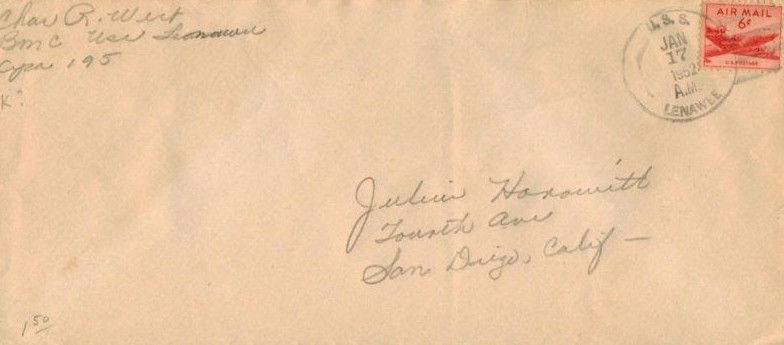 Char R. Wert
BMC USS Lenawee
APA 195
K?
U.S.S.
JAN
17
1952
A.M.
LENAWEE
AIR MAIL
6¢
U.S. POSTAGE
Julius Horowitt
Fourth Ave
San Diego, Calif –
1.50